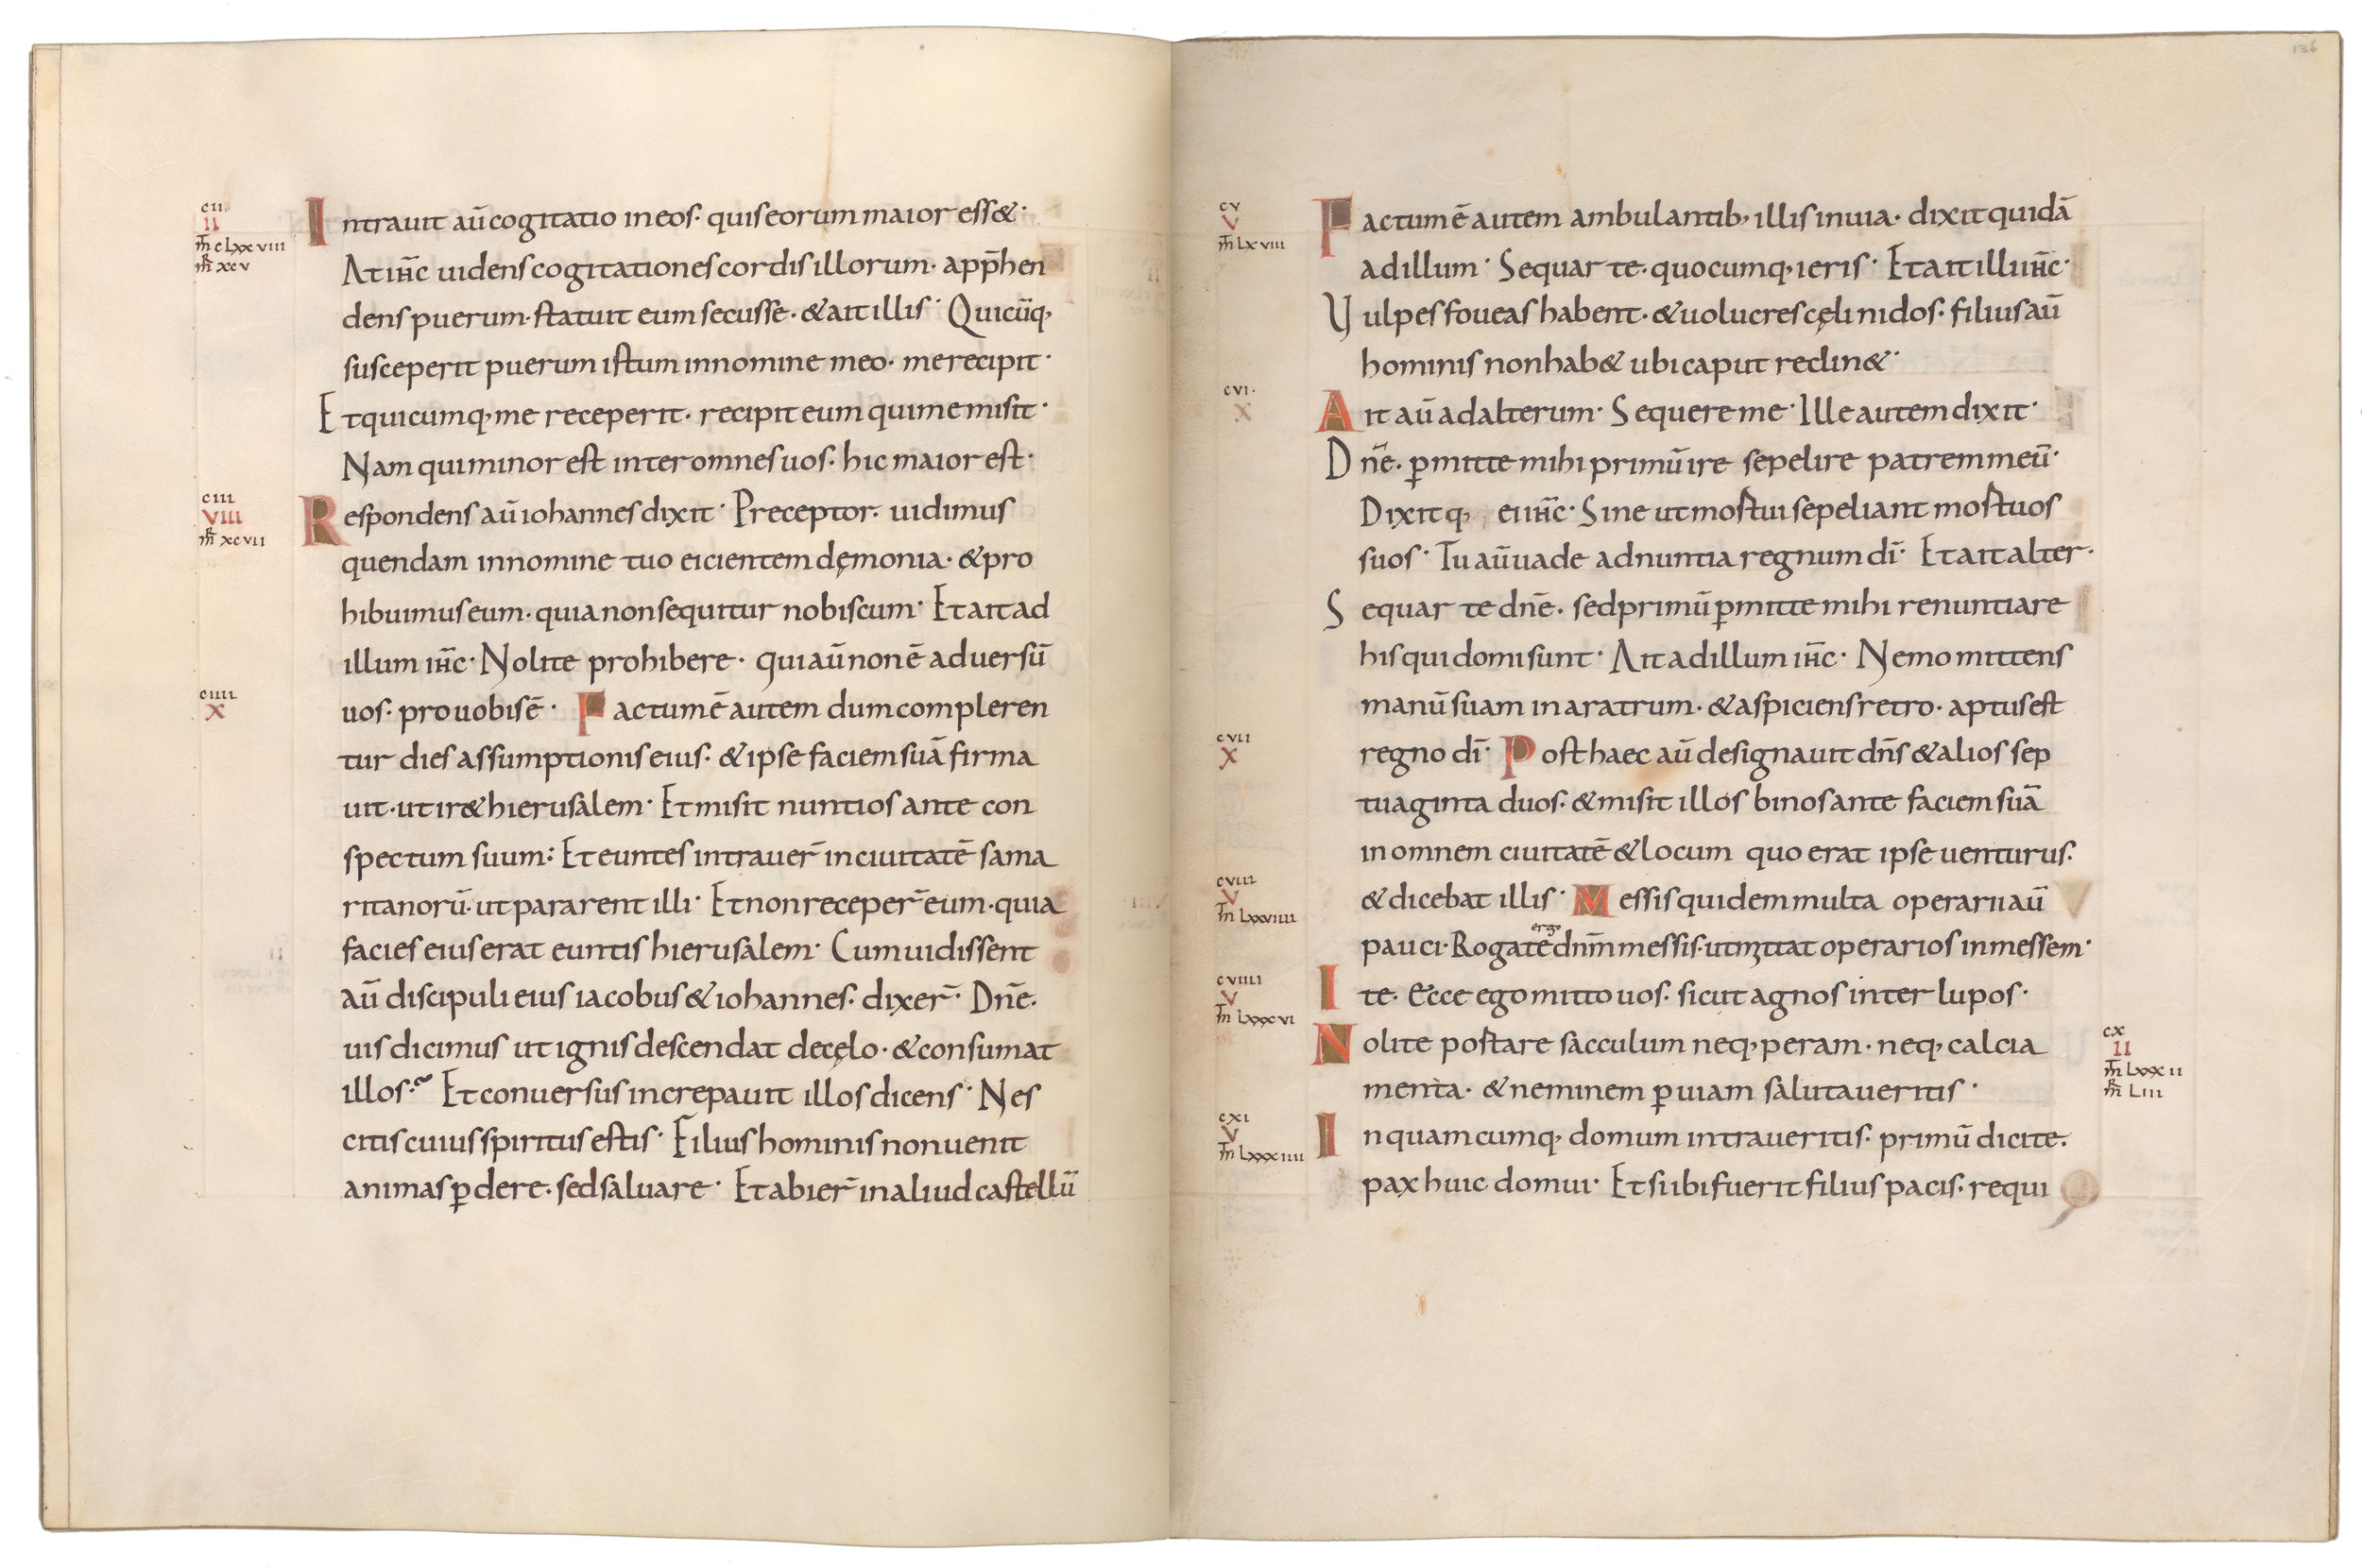 cii
II
m̄ clxxviii
m̄R xcv
Intrauit aū cogitatio in eos· quis eorum maior ess&·
At ih̄c uidens cogitationes cordis illorum· app̄hen
dens puerum· statuit eum secus se· & ait illis· Quicūq;
susceperit puerum istum in nomine meo· me recipit·
Et quicumq; me receperit· recipit eum qui me misit·
Nam qui minor est inter omnes uos· hic maior est·
ciii
VIII
m̄R xcvii
Respondens aū iohannes dixit· Preceptor· uidimus
quendam in nomine tuo eicientem dęmonia· & pro
hibuimus eum· quia non sequitur nobiscum· Et ait ad
illum ih̄c· Nolite prohibere· qui aū non ē aduersū
ciiii
X
uos· pro uobis ē· Factum ē autem dum compleren
tur dies assumptionis eius· & ipse faciem suā firma
uit· ut ir& hierusalem· Et misit nuntios ante con
spectum suum: Et euntes intrauer̄ in ciuitatē sama
ritanorū· ut pararent illi· Et non receper̄ eum· quia
facies eius erat euntis hierusalem· Cum uidissent
aū discipuli eius iacobus & iohannes· dixer̄· Dn̄e·
uis dicimus ut ignis descendat de cęlo· & consumat
illos·~ Et conuersus increpauit illos dicens· Nes
citis cuius spiritus estis· Filius hominis non uenit
animas ꝑdere· sed saluare· Et abier̄ in aliud castellū
136
cv
V
m̄ lxviii
Factum ē autem ambulantib; illis in uia· dixit quidā
ad illum· Sequar te· quocumq; ieris· Et ait illi ih̄c·
Vulpes foueas habent· & uolucres cęli nidos· filius aū
hominis non hab& ubi caput reclin&·
cvi·
X
Ait aū ad alterum· Sequere me· Ille autem dixit·
Dn̄e· ꝑmitte mihi primū ire sepelire patrem meū·
Dixitq; ei ih̄c· Sine ut mortui sepeliant mortuos
suos· Tu aū uade adnuntia regnum dī· Et ait alter·
Sequar te dn̄e· sed primū ꝑmitte mihi renuntiare
his qui domi sunt· Ait ad illum ih̄c· Nemo mittens
manū suam in aratrum· & aspiciens retro· aptus est
cvii
X
regno dī· Post haec aū designauit dn̄s & alios sep
tuaginta duos· & misit illos binos ante faciem suā
in omnem ciuitatē & locum quo erat ipse uenturus·
cviii
V
m̄ lxxviiii
& dicebat illis· Messis quidem multa operarii aū
ergo
pauci· Rogate dn̄m messis· ut mittat operarios in messem·
cviiii
V
m̄ lxxxvi
Ite· Ecce ego mitto uos· sicut agnos inter lupos·
Nolite portare sacculum neq; peram· neq; calcia
cx
II
m̄ lxxxii
m̄R liii
menta· & neminem ꝑ uiam salutaueritis·
cxi
V
m̄ lxxxiiii
In quamcumq; domum intraueritis· primū dicite·
pax huic domui· Et si ibi fuerit filius pacis· requi